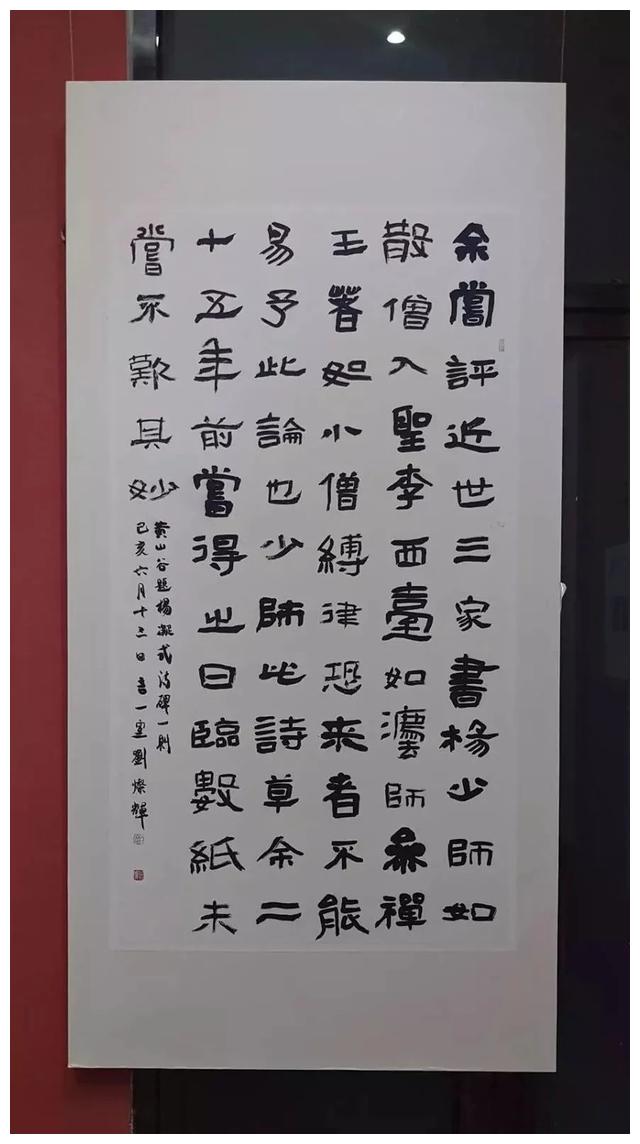 余嘗評近世三家書楊少師如
散僧入聖李西臺如灋師參禪
王著如小僧縛律恐来者不能
易予此論也少師此詩草余二
十五年前嘗得之日臨數紙未
嘗不歎其妙
黄山谷題楊凝式詩碑一則
己亥六月十三日言一室劉燦輝